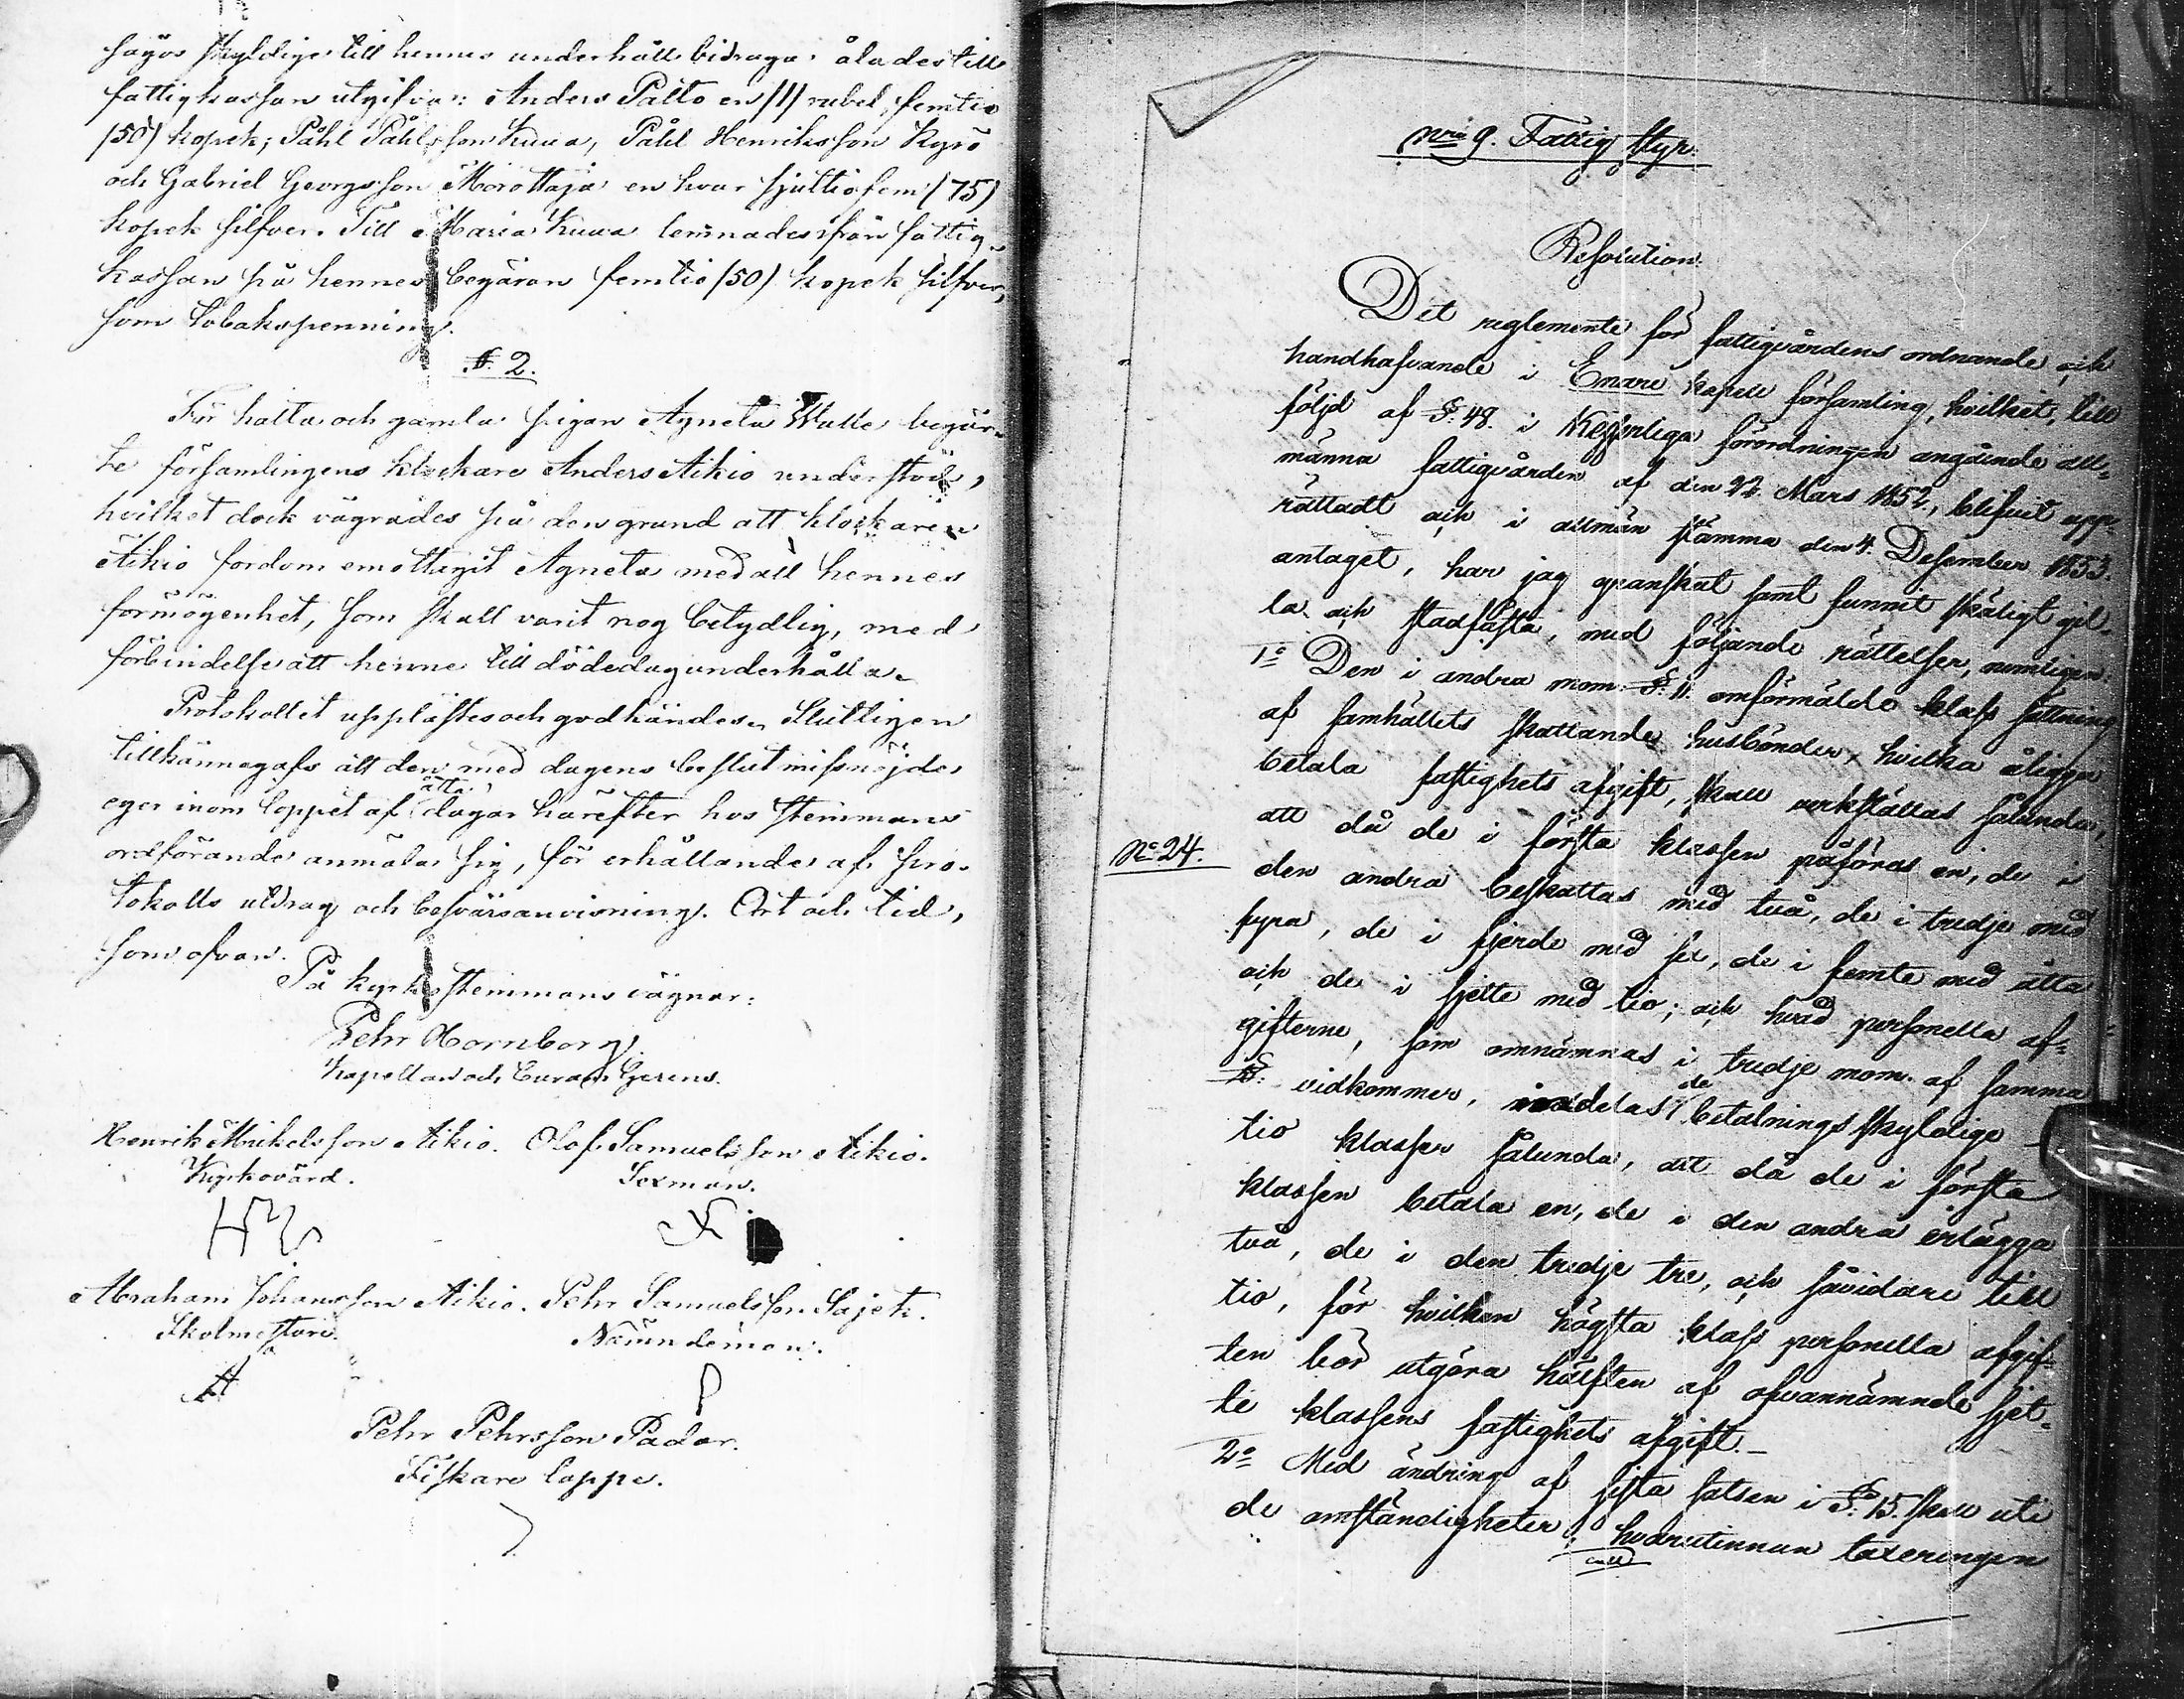 sågos skyldige till hennes underhåll bidraga ålades till
fattigkassan utgifva: Anders Palto en /1/ rubel, femtio
/50/ kopek; Påhl Påhlsson Kuua, Påhl Henriksson Kyrö
och Gabriel Georgsson Morottaja en hvar sjuttiofem /75/
kopek silfver. Till Maria Kuua lemnades ifrån fattig-
kassan på hennes begäran femtio /50/ kopek silfver,
som tobakspenning.
§ 2.
För halta och gamla pigan Agneta Walle begär-
te församlingens klockare Anders Aikio understöd,
hvilket dock vägrades på den grund att klockaren
Aikio fordom emottagit Agneta med all hennes
förmögenhet, som skall varit nog betydlig, med
förbindelse att henne till dödedag underhålla.
Protokollet upplästes och godkändes. Slutligen
tillkännagafs att den med dagens beslut missnöjde
eger inom loppet af åtta dagar härefter hos stemmans
ordförande anmäla sig, för erhållande af pro-
tokolls utdrag och besvärsanvisning. Ort och tid,
som ofvan.
På kyrkostemmans vägnar:
Pehr Hornborg
Kapellan och Curam Gerens.
Henrik Mikelsson Aikio. Olof Samuelsson Aikio.
Kyrkovärd. Sexman.
Abraham Johansson Aikio. Pehr Samuelsson Sajek.
Skolmestare. Nämndeman.
A P
Pehr Pehrsson Padar.
Fiskare lappe.
N:o 9. Fattig styr:
Resolution.
Det reglemente för fattigvårdens ordnande och
handhafvande i Enare kapell församling, hvilket, till
följd af §. 48. i Kejserliga förordningen angående all-
männa fattigvården af den 22. Mars 1852, blifvit upp-
rättadt och i allmän stämma den 4. December 1853.
antaget, har jag granskat samt funnit skäligt gil-
la och stadfästa, med följande rättelser, nemligen:
1:o Den i andra mom. §. 11. omförmälde klass sättning
af samhällets skattande husbönder, hvilka åligga
betala fastighets afgift, skall verkställas sålunda,
att då de i första klassen påföras en, de i
N:o 24.
den andra beskattas med två, de i tredje med
fyra, de i fjerde med sex, de i femte med åtta
och de i sjette med tio; och hvad personella af-
gifterne, som omnämnas i tredje mom. af samma
§: vidkommer, indelas de betalnings skyldige
tio klasser sålunda, att då de i första
klassen betala en, de i den andra erlägga
två, de i den tredje tre, och såvidare till
tio, för hvilken högsta klass personella afgif-
ten bör utgöra hälften af ofvannämnde sjet-
te klassens fastighets afgift.-
2:o Med ändring af sista satsen i §: 15. skall uti
de omständigheter, hvarutinnan taxeringen